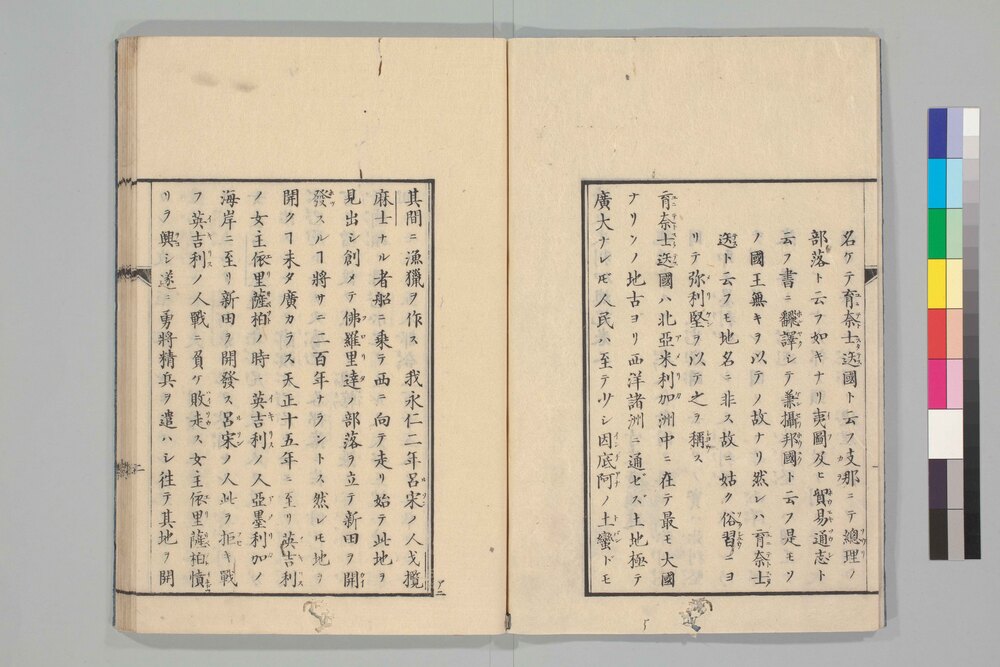 名ケテ育奈士迭國ト云フ支那ニテ總理ノ
部落ト云フ如キナリ夷圖及ヒ貿易通志ト
云フ書ニ飜譯シテ兼攝邦國ト云フ是モソ
ノ國王無キヲ以テノ故ナリ然レハ育奈士
迭ト云フモ地名ニ非ス故ニ姑ク俗習ニヨ
リテ弥利堅ヲ以テ之ヲ稱ス
育奈士迭國ハ北亞米利加洲中ニ在テ最モ大國
ナリソノ地古ヨリ西洋諸洲ニ通セズ土地極テ
廣大ナレ𪜈人民ハ至テ少シ因底阿ノ土蠻ドモ
其間ニ漁獵ヲ作ス我永仁二年呂宋ノ人戈攬
麻士ナル者船ニ乘テ西ニ向テ走リ始テ此地ヲ
見出シ創メテ佛羅里達ノ部落ヲ立テ新田ヲ開
發スルヿ將サニ二百年ナラントス然レ𪜈地ヲ
開クヿ未タ廣カラス天正十五年ニ至リ英吉利
ノ女主依里薩柏ノ時ニ英吉利ノ人亞墨利加ノ
海岸ニ至リ新田ヲ開發ス呂宋ノ人此ヲ拒キ戰
フ英吉利ノ人戰ニ負ケ敗走ス女主依里薩柏憤
リヲ興シ遂ニ勇將精兵ヲ遣ハシ往テ其地ヲ開